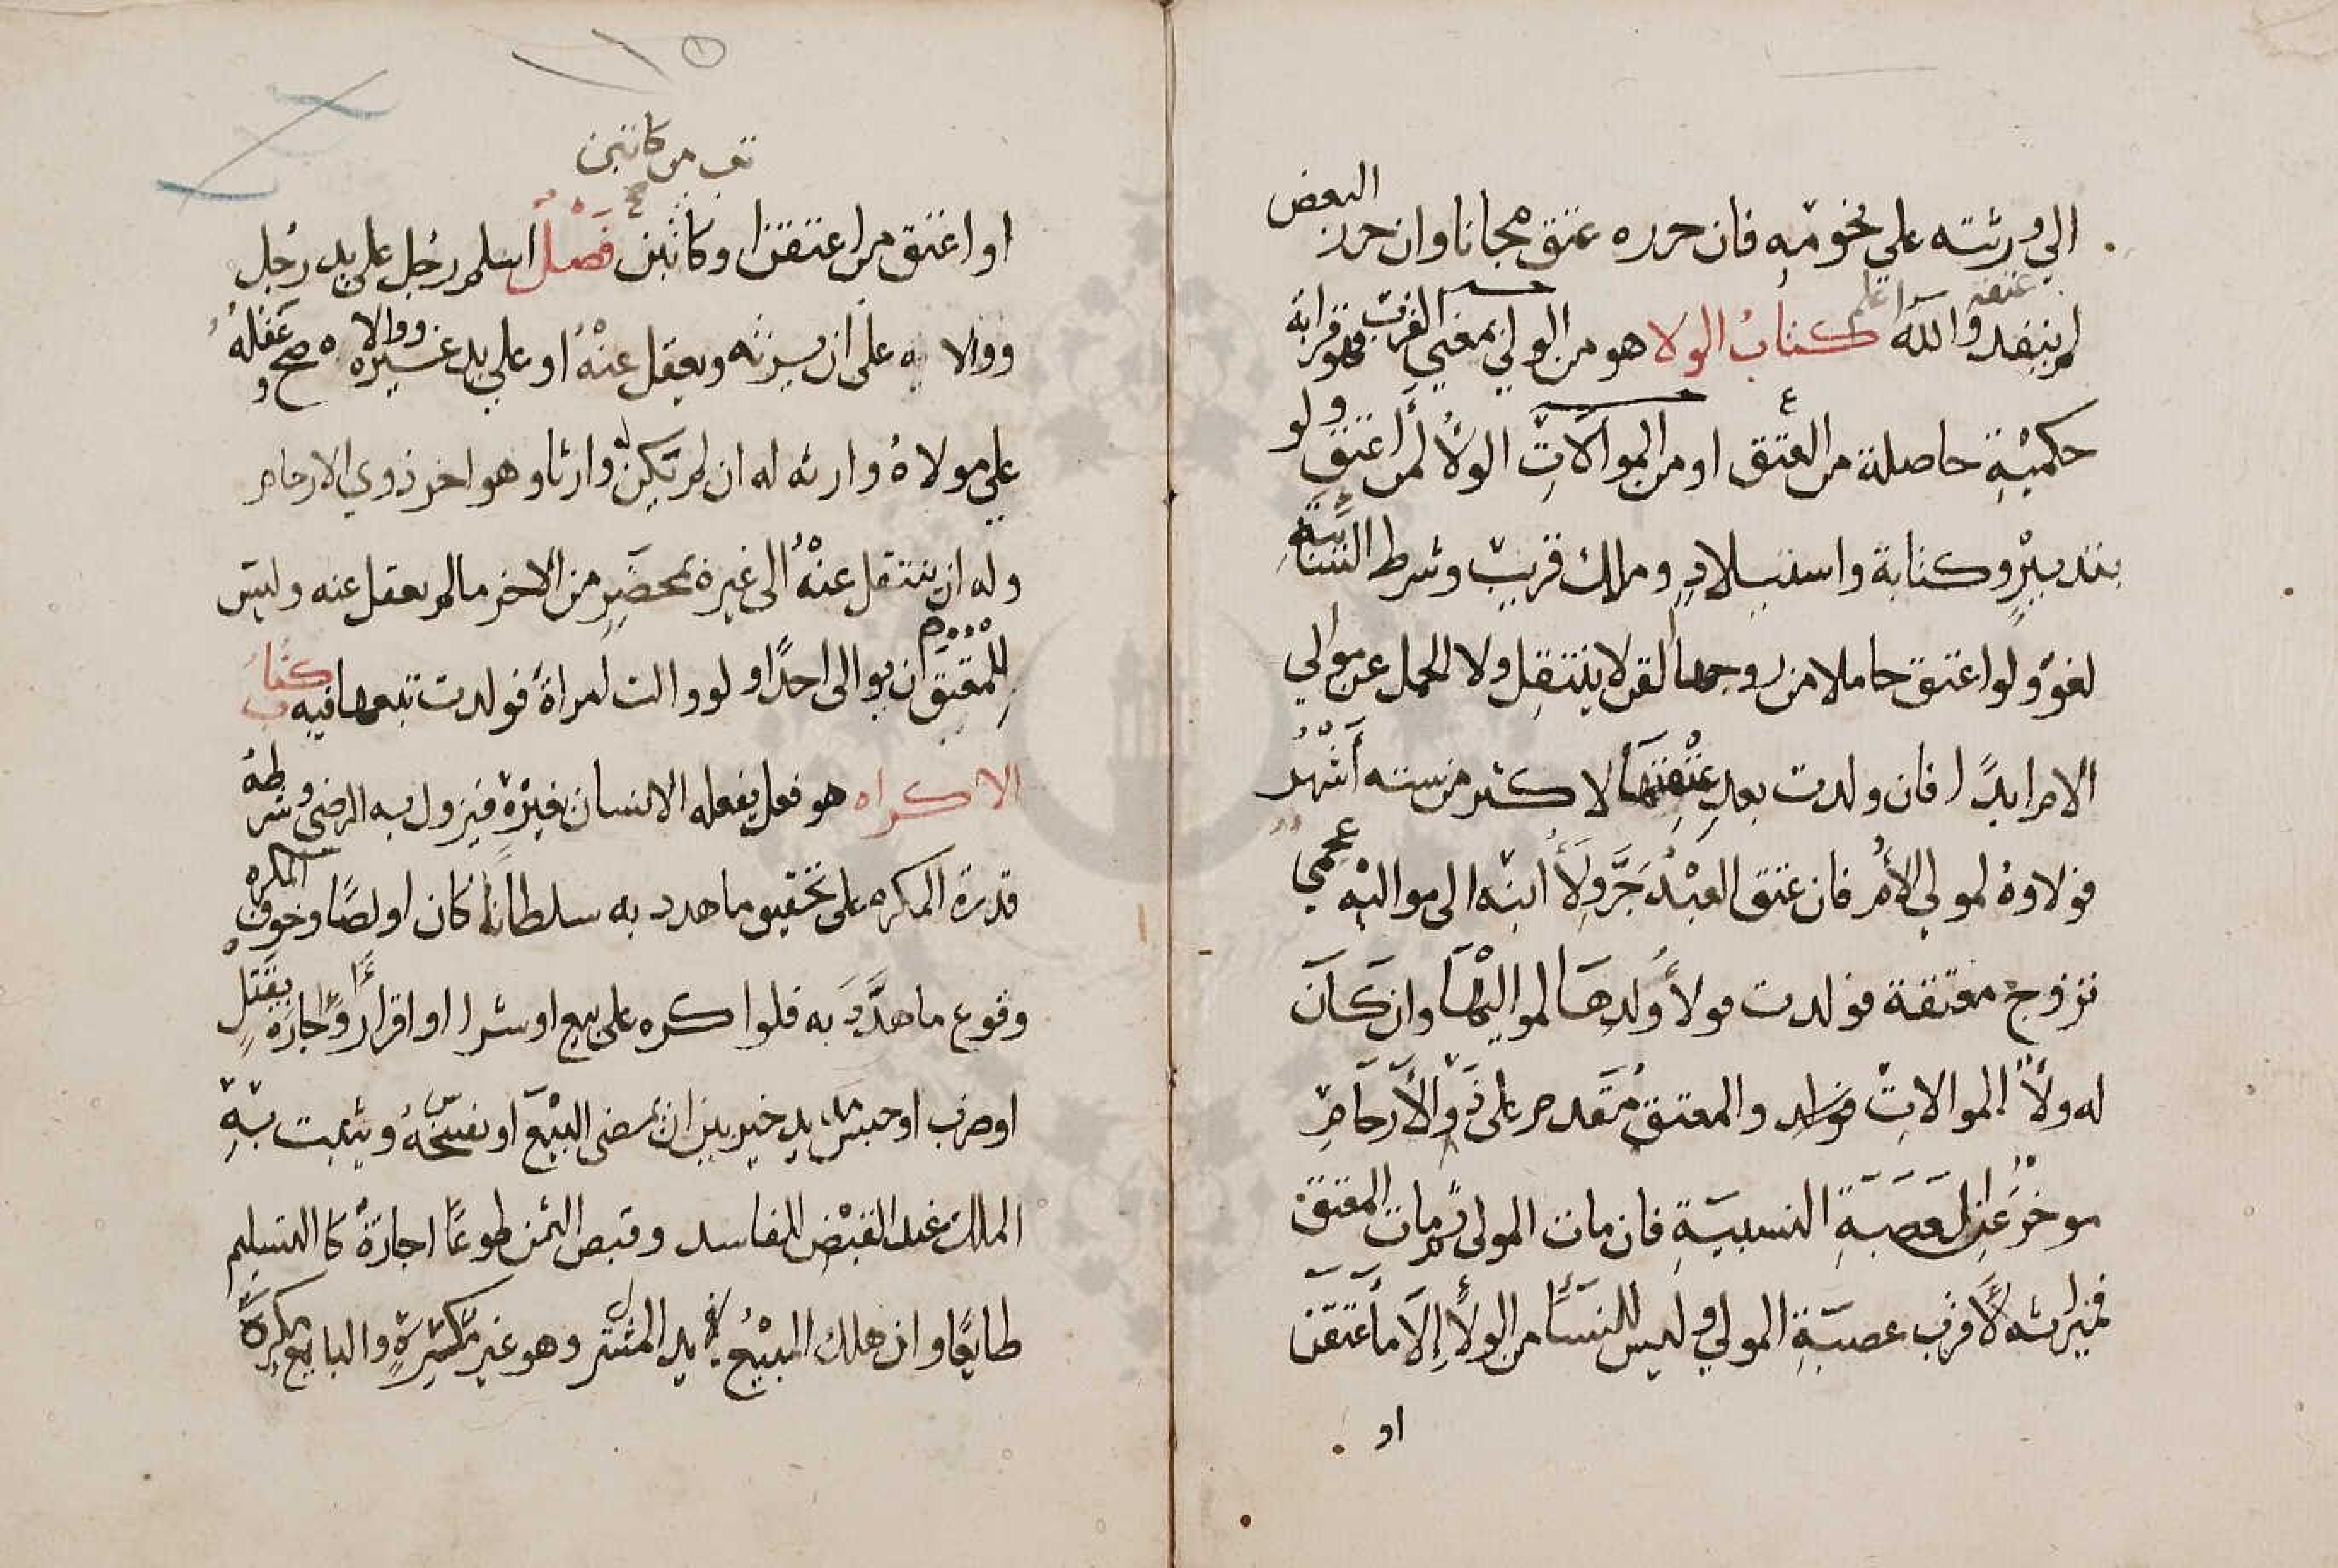 الي ورثته على نخومه فان حرره عتق مجانا وان حرر البعض
لم ينفد عتقه والله اعلم كتاب الولا هو من الولي بمعنى القرب فهو قرابة
حكمية حاصلة من العتق او من الموالات الولا لمن اعتق ولو
بتدبير وكتابة واستيلاد وملك قريب وشرط السائبة
لغو ولو اعتق حاملا من زوجها القن لا ينتقل ولا الحمل عن موالي
الام ابدا فان ولدت بعد عتقها لاكثر من ستة أشهر
فولاوه لموالي الأم فان عتق العبد جر ولأ ابنه الى مواليه عجمي
تزوج معتقة فولدت فولأ ولدها لمواليها وان كان
له ولاأ الموالات والمعتق مقدم على ذو الأرحام
موخر عن العصبة النسبية فان مات المولى ثم مات المعتق
فميراثه لأقرب عصبة المولي وليس للنسأ من الولأ إلا ما أعتقن
او
او اعتق من اعتقن او كاتبن فصل اسلم رجل على يد رجل
تف من كاتبن
ووالاه على ان يرثه ويعقل عنه او على يد غيره ووالاه صح وعقله
على مولاه وارثه له ان لم يكن له وارثا وهو اخر ذوي الارحام
وله ان ينتقل عنه الى غيره بمحضر من الاخر ما لم يعقل عنه وليس
للمعتق ان يوالى احدًا ولو والت امراة فولدت تبعها فيه كتاب
الاكراه هو فعل يفعله الانسان بغيره فيزول به الرضى وشرطه
قدرة المكره على تحقيق ما هدد به سلطانا كان او لصا وخوف المكره
وقوع ما هدد به فلو اكره على بيع او شرا او اقرار او اجارة بقتل
او ضرب او حبس خير بين ان يمضى البيع او يفسخه ويثبت به
الملك عند القبض للفاسد وقبض الثمن طوعا اجازة كا التسليم
طايعا وان هلك المبيع في يد المشتر وهو غير مكره والبايع مكره